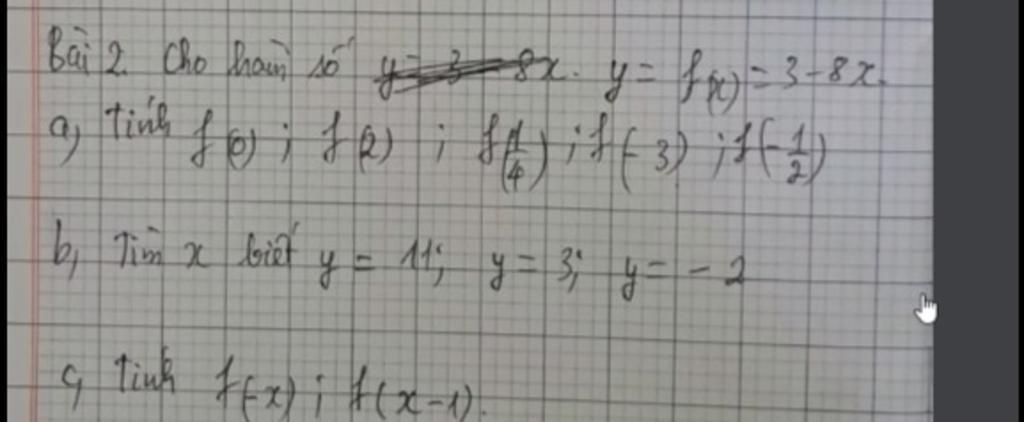 Bài 2. Cho hàm số y = 3 - 8x. y = f(x) = 3 - 8x.
a, Tính f(0) ; f(2) ; f(1/4) ; f(-3) ; f(-1/2)
b, Tìm x biết y = 11; y = 3; y = -2
c, Tính f(-x) ; f(x-1).